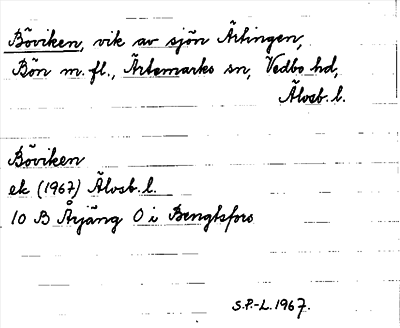 Böviken, vik av sjön Ärtingen,
Bön m.fl., Ärtemarks sn, Vedbo hd,
Älvsb. l.
Böviken
ek (1967) Älvsb. l.
10 B Årjäng O i Bengtsfors
S.P.-L. 1967.